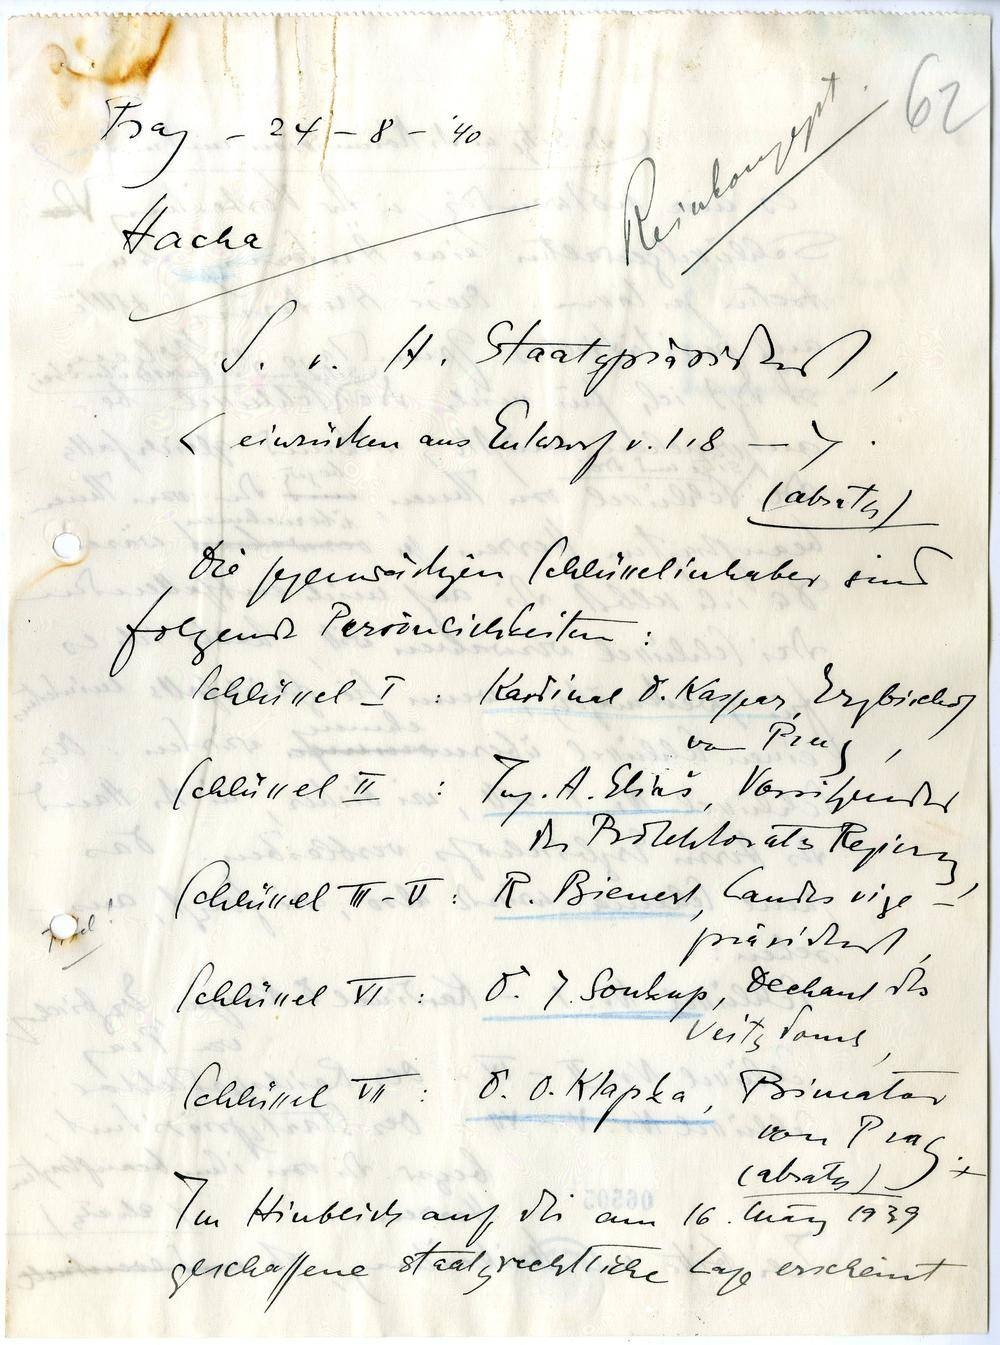 62
Reinkonzept.
Prag - 24 - 8 - '40
Hacha
S. v. H. Staatspräsident,
< einrücken aus Entwurf v. 1.8 — > .
(absatz)
Die gegenwärtigen Schlüsselinhaber sind
folgende Persönlichkeiten :
Schlüssel I : Kardinal D. Kaspar, Erzbischof
von Prag,
Schlüssel II : Ing. A. Eliáš, Vorsitzender
der Protektorats Regierung,
Schlüssel III - V : R. Bienert, Landesvize-
präsident,
Schlüssel VI : D. J. Soukup, Dechant des
Veitsdoms,
Schlüssel VII : D. O. Klapka, Primator
von Prag.
(absatz)
Im Hinblick auf die am 16. März 1939
geschaffene staatsrechtliche Lage erscheint